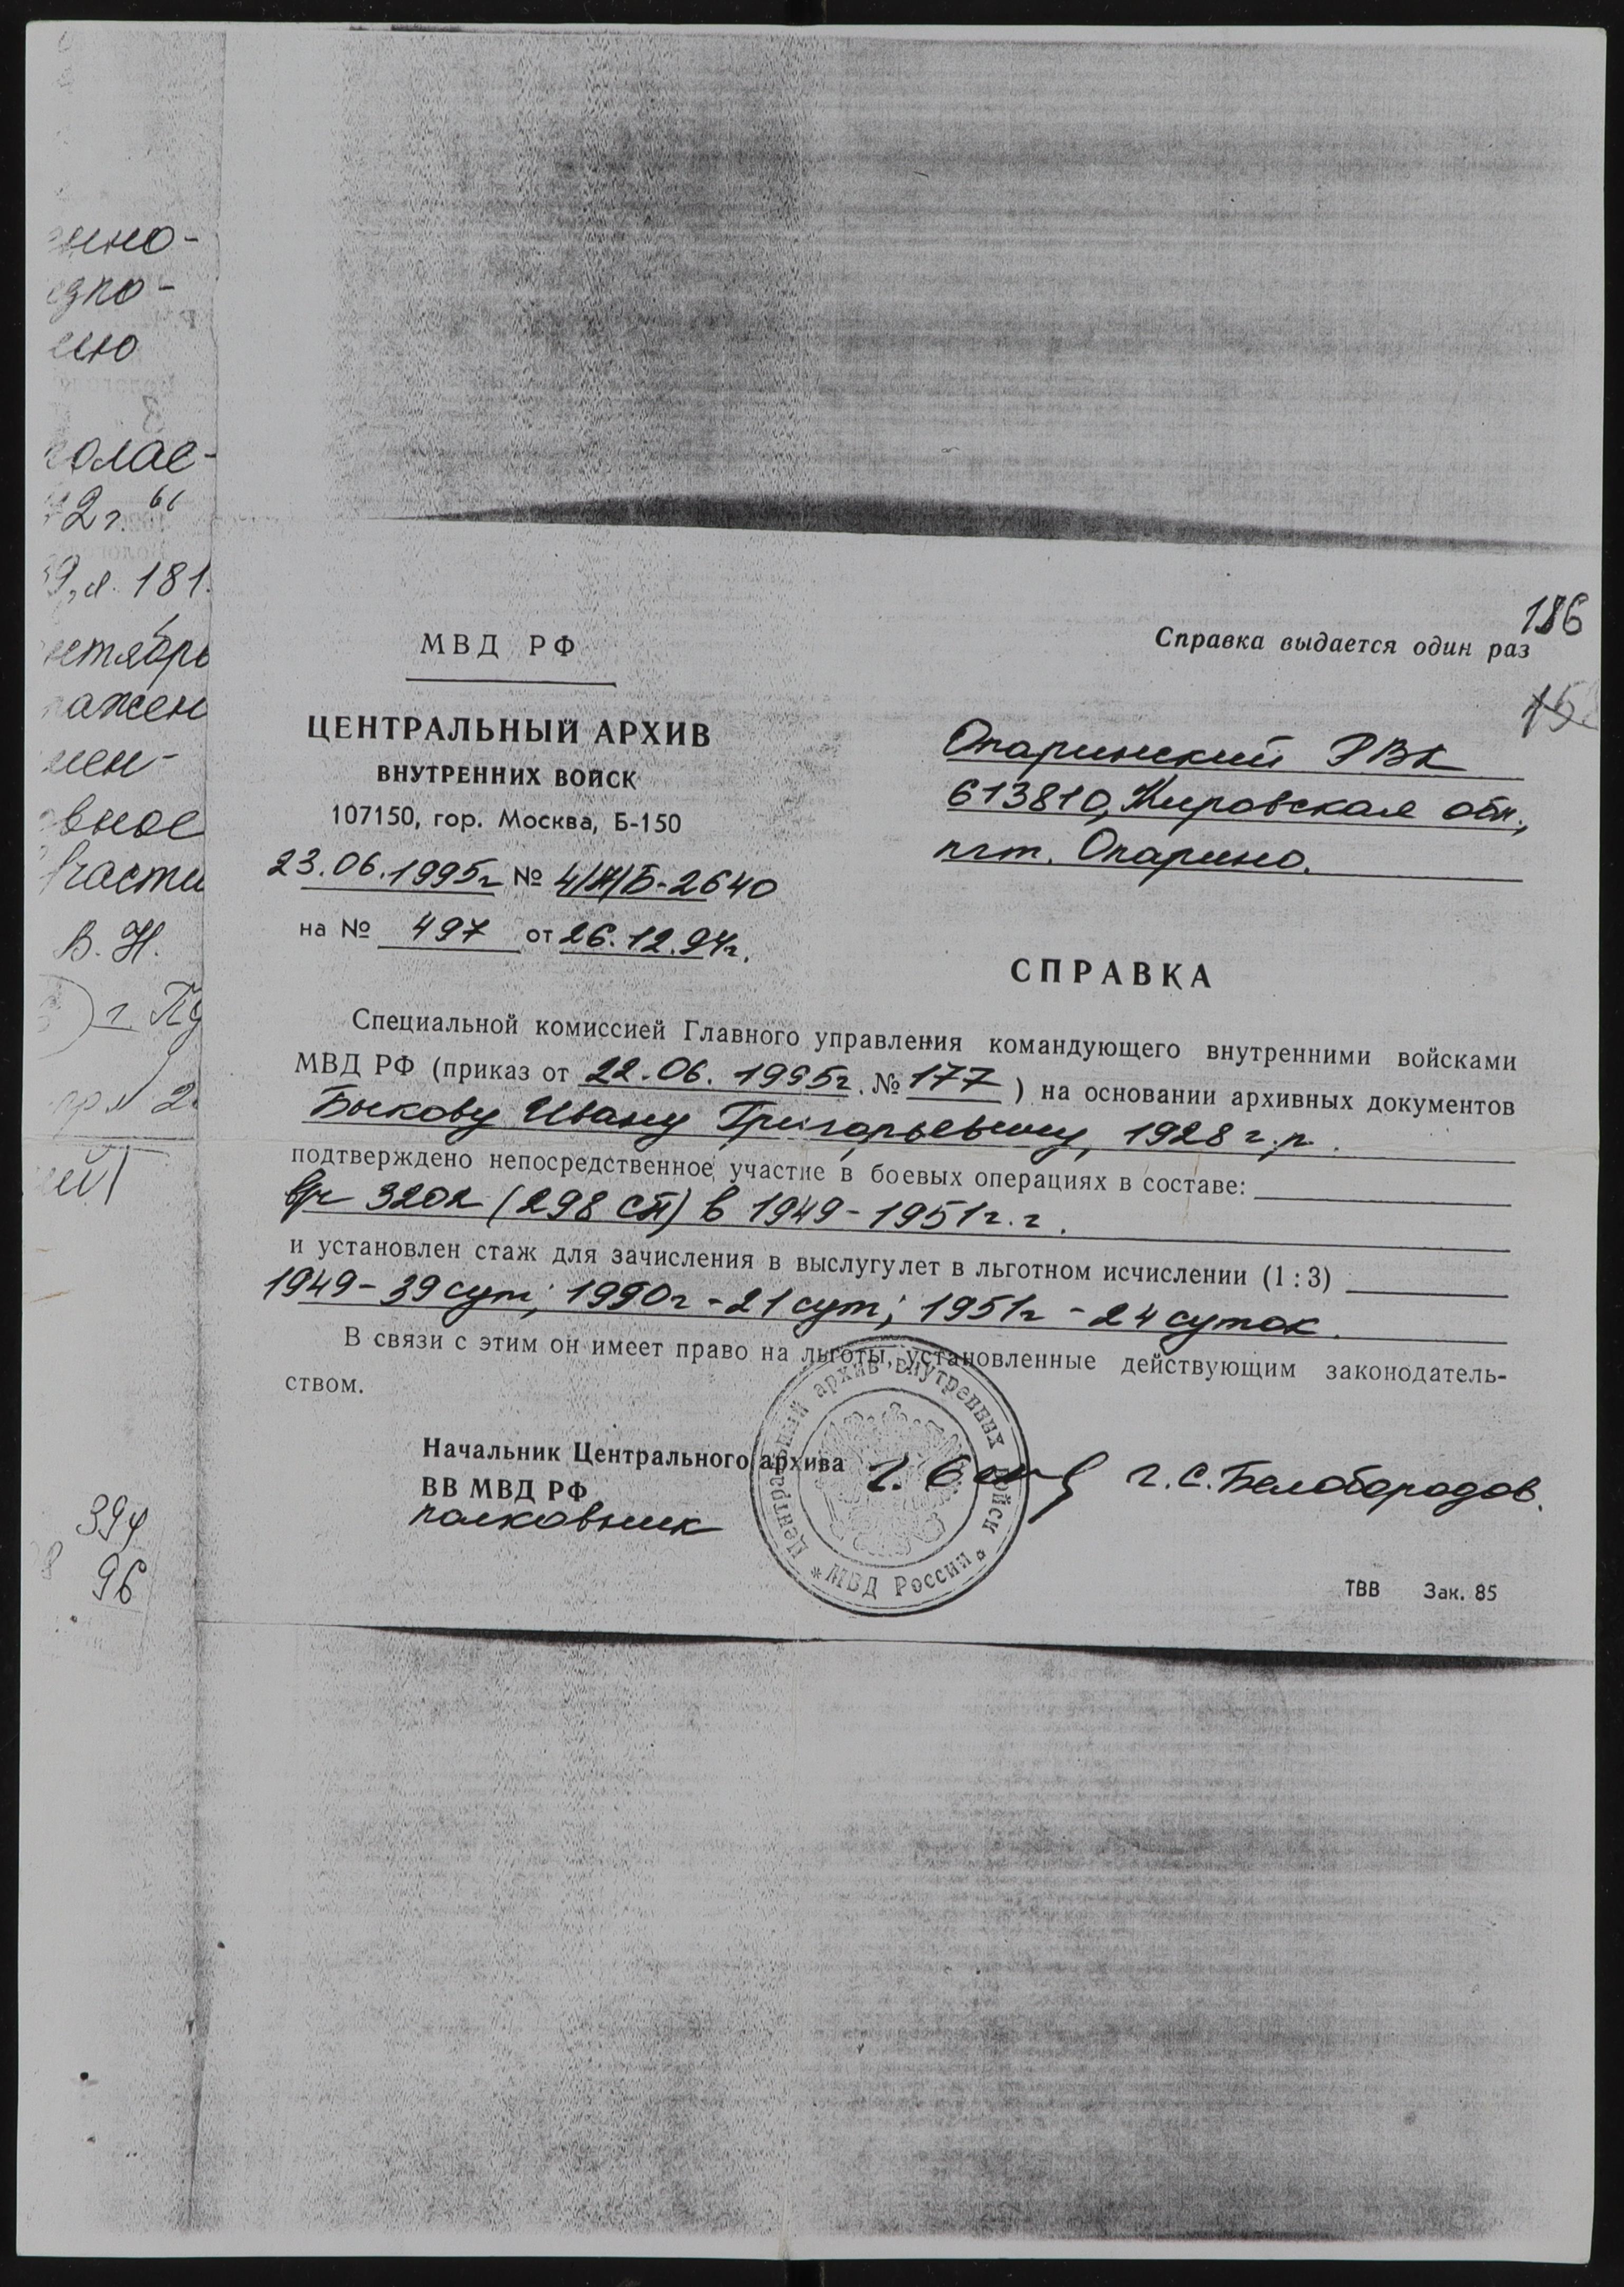 186
МВД РФ
Справка выдается один раз
ЦЕНТРАЛЬНЫЙ АРХИВ
ВНУТРЕННИХ ВОЙСК
107150, гор. Москва, Б-150
23.06.1995г № 4/П/Б-2640
на № 497 от 26.12.94г.
Опаринский РВК
613810, Кировская обл.,
пгт. Опарино.
СПРАВКА
Специальной комиссией Главного управления командующего внутренними войсками
МВД РФ (приказ от 22.06.1995г. № 177) на основании архивных документов
Быкову Ивану Григорьевичу, 1928 г.р.
подтверждено непосредственное участие в боевых операциях в составе:
в/ч 3202 (298 СП) в 1949-1951г.г.
и установлен стаж для зачисления в выслугу лет в льготном исчислении (1 : 3)
1949-39 сут; 1990г-21 сут; 1951г-24 суток.
В связи с этим он имеет право на льготы, установленные действующим законодатель-
ством.
Начальник Центрального архива
ВВ МВД РФ
полковник
Г.С.Белобородов.
Центральный архив внутренних войск * МВД России *
ТВВ Зак. 85
олае-
2г."
9, л. 181.
ажен
мен-
вное
части
В. Н.
394
96